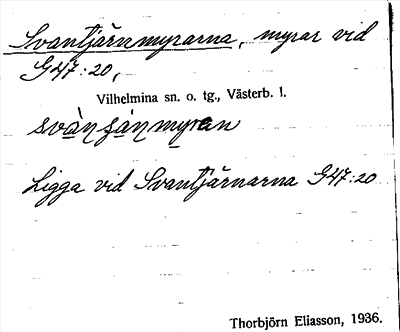 Svantjärnmyrarna, myrar vid
G47:20,
Vilhelmina sn. o. tg., Västerb. l.
Ligga vid Svantjärnarna G47:20
Thorbjörn Eliasson, 1936.